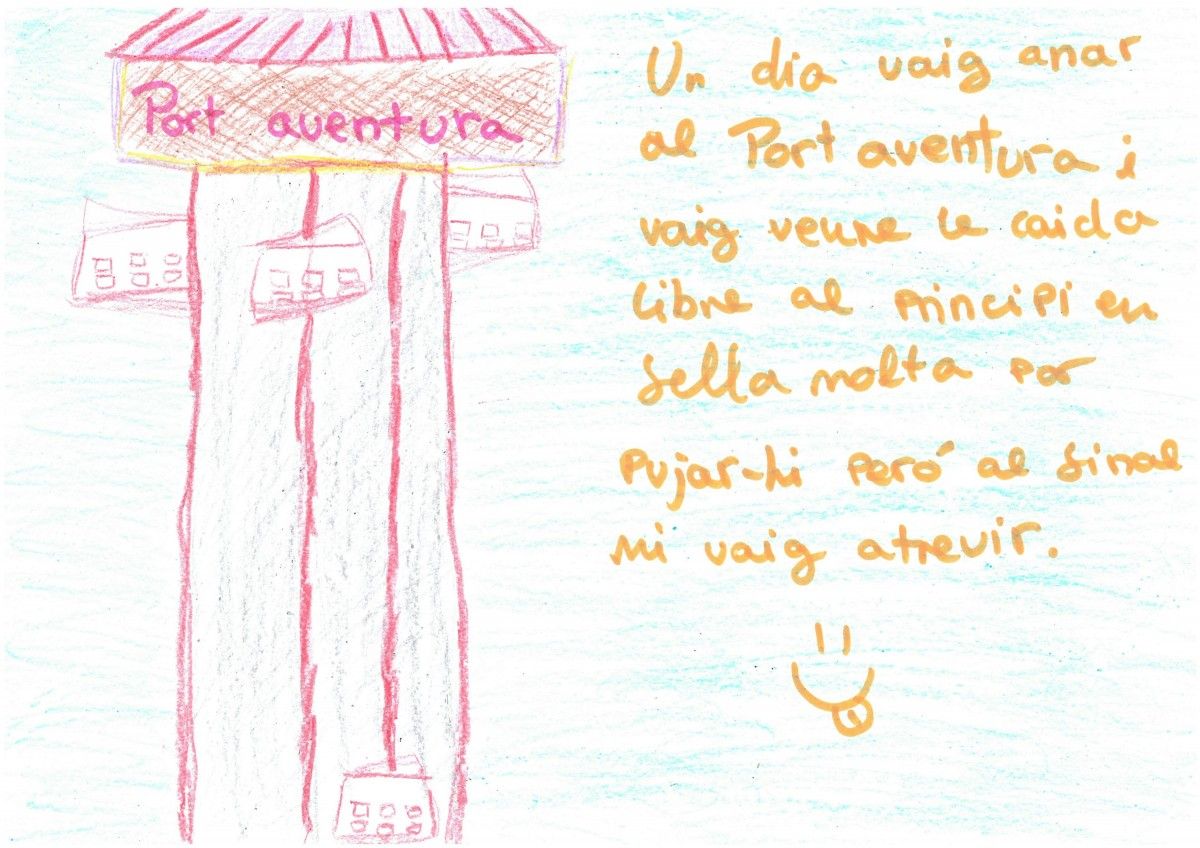 Port aventura
Un dia vaig anar
al Port aventura i
vaig veure le caida
libre al principi em
feLLa molta por
pujar-hi peró al final
mi vaig atrevir.